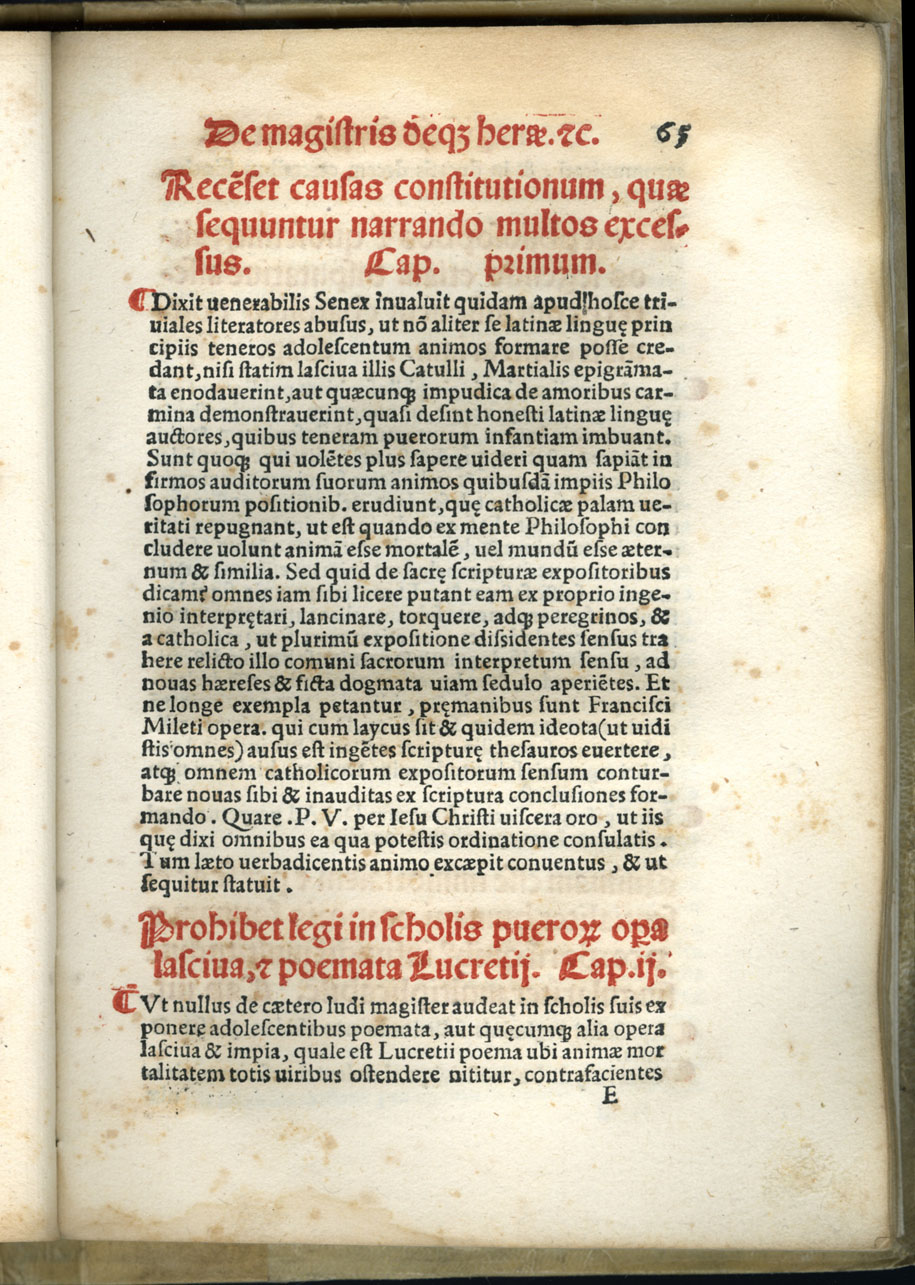 De magistris deqꝫ heræ. ⁊c. 65
Recēset causas constitutionum, quæ
sequuntur narrando multos exces-
sus. Cap. primum.
Dixit uenerabilis Senex inualuit quidam apud hosce tri-
uiales literatores abusus, ut nō aliter se latinæ linguę prin
cipiis teneros adolescentum animos formare posse cre-
dant, nisi statim lasciua illis Catulli, Martialis epigrāma-
ta enodauerint, aut quæcunqꝫ impudica de amoribus car-
mina demonstrauerint, quasi desint honesti latinæ linguę
auctores, quibus teneram puerorum infantiam imbuant.
Sunt quoqꝫ qui uolētes plus sapere uideri quam sapiāt in
firmos auditorum suorum animos quibusdā impiis Philo
sophorum positionib. erudiunt, quę catholicæ palam ue-
ritati repugnant, ut est quando ex mente Philosophi con
cludere uolunt animā esse mortalē, uel mundū esse æter-
num & similia. Sed quid de sacrę scripturæ expositoribus
dicam? omnes iam sibi licere putant eam ex proprio inge-
nio interprętari, lancinare, torquere, adqꝫ peregrinos, &
a catholica, ut plurimū expositione dissidentes sensus tra
here relicto illo comuni sacrorum interpretum sensu, ad
nouas hæreses & ficta dogmata uiam sedulo aperiētes. Et
ne longe exempla petantur, pręmanibus sunt Francisci
Mileti opera. qui cum laycus sit & quidem ideota (ut uidi
stis omnes) ausus est ingētes scripturę thesauros euertere,
atqꝫ omnem catholicorum expositorum sensum contur-
bare nouas sibi & inauditas ex scriptura conclusiones for-
mando. Quare .P. V. per Iesu Christi uiscera oro, ut iis
quę dixi omnibus ea qua potestis ordinatione consulatis.
Tum læto uerbadicentis animo excæpit conuentus, & ut
sequitur statuit.
Prohibet legi in scholis pueroꝝ oꝑa
lasciua, ⁊ poemata Lucretij. Cap. ij.
Vt nullus de cætero ludi magister audeat in scholis suis ex
ponere adolescentibus poemata, aut quęcumqꝫ alia opera
lasciua & impia, quale est Lucretii poema ubi animæ mor
talitatem totis uiribus ostendere nititur, contrafacientes
E